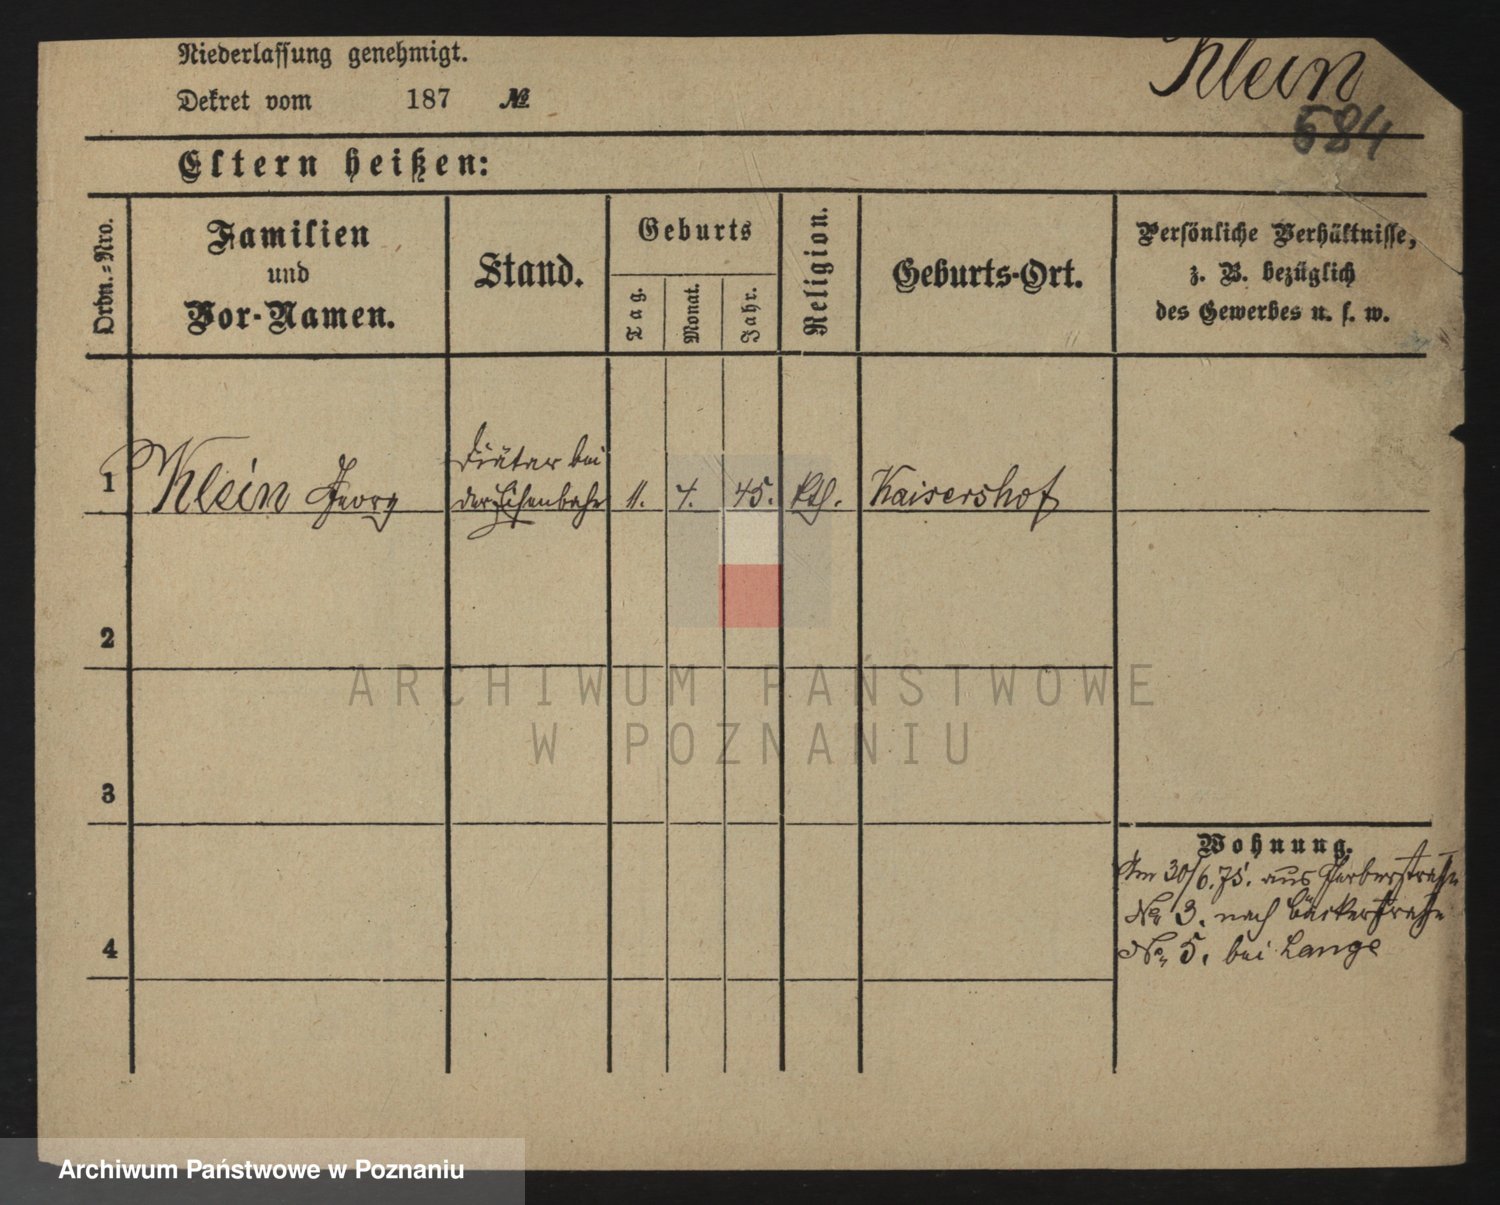 Niederlassung genehmigt.
Klein
Dekret vom 187 №
684
Eltern heißen:
Ordn.=Nro.
Familien
und
Vor-Namen.
Stand.
Geburts
Tag.
Monat.
Jahr.
Religion.
Geburts-Ort.
Persönliche Verhältnisse,
z. B. bezüglich
des Gewerbes u. s. w.
1 Klein Georg
Diätar bei
der Eisenbahn
11. 4. 45. kth. Kaisershof
2
ARCHIWUM PAŃSTWOWE
W POZNANIU
3
Wohnung.
Am 30/6.75. aus Gerberstraße
No 3. nach Bäckerstraße
No 5. bei Lange
4
Archiwum Państwowe w Poznaniu